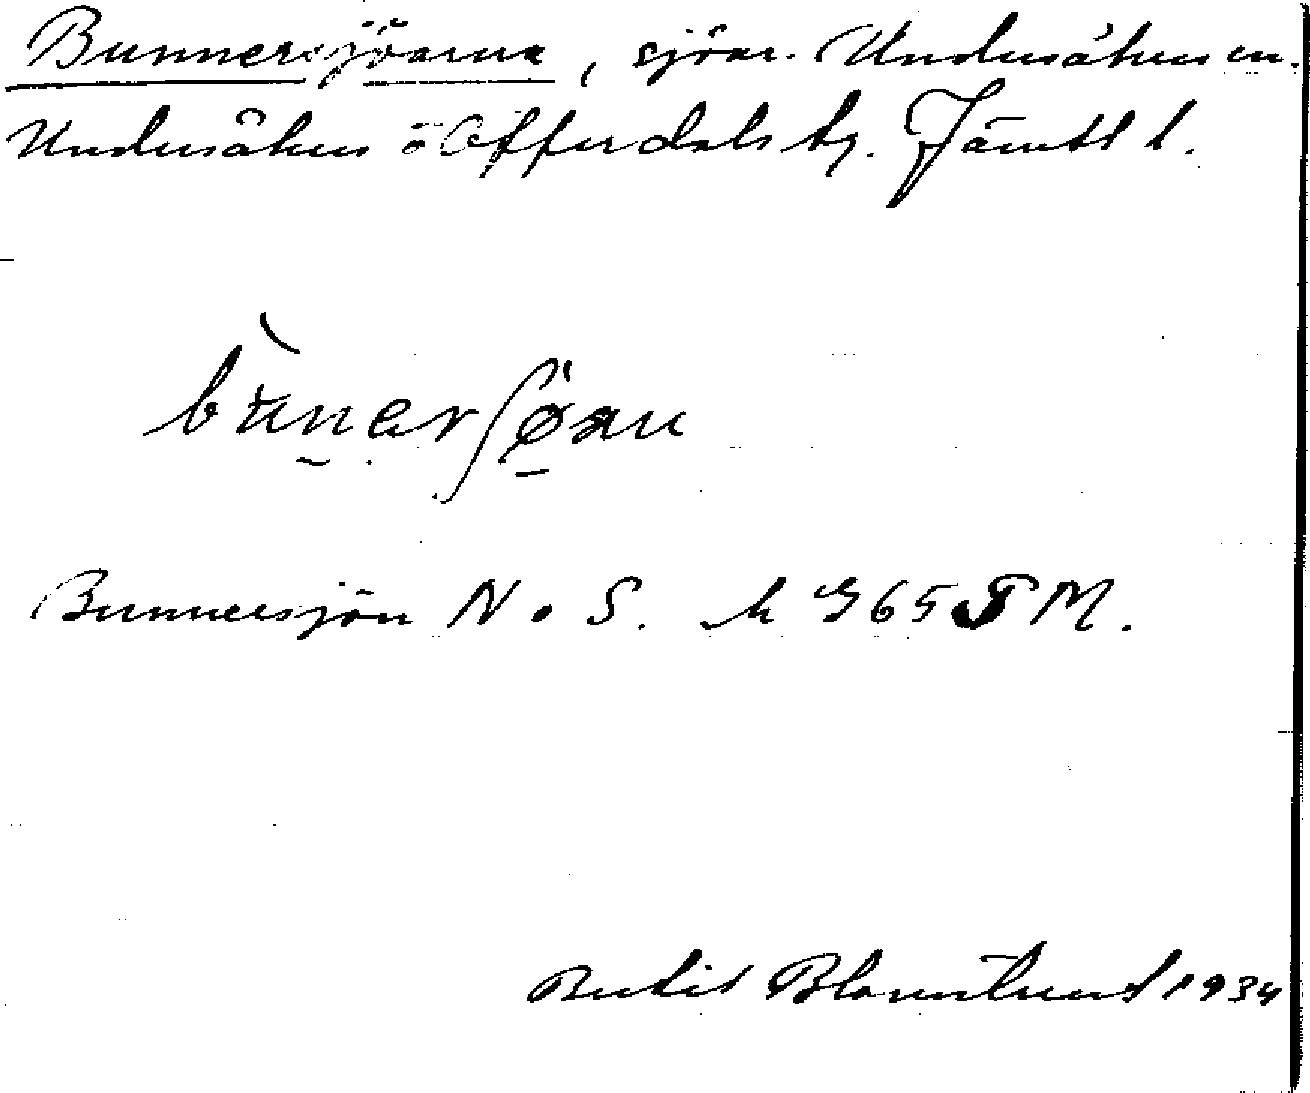 Bunnersjöarna, sjöar. Undersåkers sn.
Undersåkers o Offerdals tg. Jämtl l.
Bunnersjön N o S. h 965 T M.
Bertil Blomstrand 1934